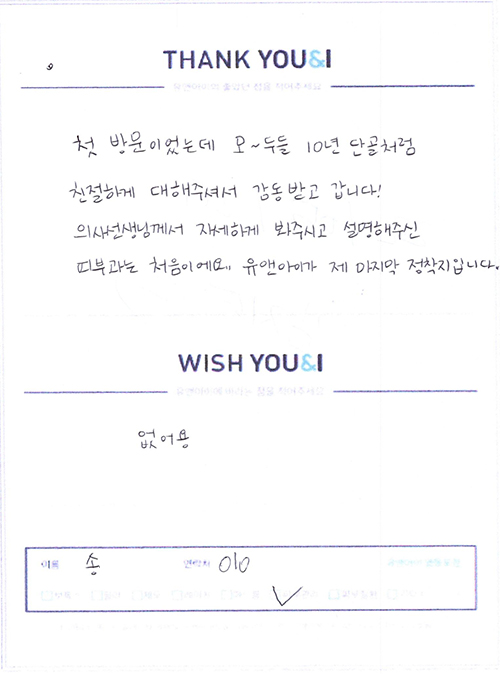 THANK YOU&I
유앤아이의 좋았던 점을 적어주세요
첫 방문이었는데 모~두들 10년 단골처럼
친절하게 대해주셔서 감동받고 갑니다!
의사선생님께서 자세하게 봐주시고 설명해주신
피부과는 처음이에요.. 유앤아이가 제 마지막 정착지입니다.
WISH YOU&I
유앤아이에 바라는 점을 적어주세요
없어용
이름 송 연락처 010